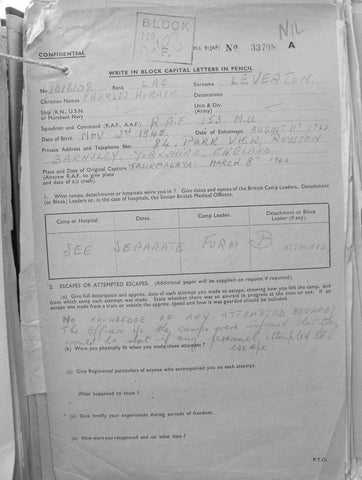 BLOCK
No
R.A.F.
NIL
CONFIDENTIAL
M.I. 9/JAP/ No 33798 A
WRITE IN BLOCK CAPITAL LETTERS IN PENCIL
No. 1016109 Rank LAC Surname LEVERTON
Christian Names CHARLES HORACE Decorations
Ship (R.N., U.S.N. or Merchant Navy Unit & Div. (Army)
Squadron and Command (R.A.F., A.A.F.) R.A.F. 153. M.U.
Date of Birth Nov 2nd Date of Enlistment AUGUST
Private Address and Telephone No: 34, PARK VIEW, ROYSTON
BARNSLEY, YORKSHIRE, ENGLAND.
Place and Date of Original Capture TASIKMALAYA. MARCH 8th 1942
(Aircrew R.A.F. to give place and date of a/c crash).
1. What camps, detachments or hospitals were you in? Give dates and names of the British Camp Leaders, Detachment (or Block) Leaders or, in the case of hospitals, the Senior British Medical Officers.
Camp or Hospital. Dates. Camp Leader. Detachment or Block Leader (if any).
SEE SEPARATE FORM B ATTACHED
2. ESCAPES OR ATTEMPTED ESCAPES. (Additional paper will be supplied on request if required).
(a) Give full description and approx. date of each attempts you made to escape, showing how you left the camp, and from which camp each attempt was made. State whether there was an air-raid in progress at the time or not. If an escape was made from a train or vehicle the approx. speed and how it was guarded should be included.
NO KNOWLEDGE OF ANY ATTEMPTED ESCAPES.
The Officers i/c the camps were informed that they
would be shot if any personnel attempted to
escape.
(b) Were you physically fit when you made these attempts?
(c) Give Regimental particulars of anyone who accompanied you on each attempt.
What happened to them?
(d) Give briefly your experiences during periods of freedom.
(e) How were you recaptured and on what date?
P.T.O.